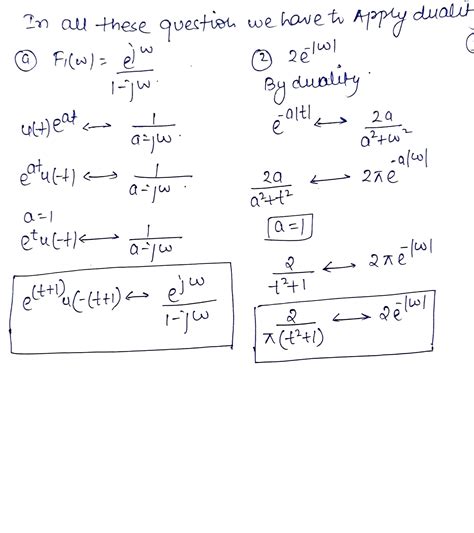 In all these question we have to Apply dualit
(a) F₁(ω) = e^{jω} / (1-jω)
u(t)e^{at} ↔ 1/(a-jω).
e^{at}u(-t) ↔ 1/(a-jω).
a=1
e^{t}u(-t) ↔ 1/(a-jω)
e^{(t+1)}u(-(t+1) ↔ e^{jω}/(1-jω)
(2) 2e^{-|ω|}
By duality.
e^{-a|t|} ↔ 2a/(a²+ω²)
2a/(a²+t²) ↔ 2πe^{-a|ω|}
a=1
2/(t²+1) ↔ 2πe^{-|ω|}
2/(π(t²+1)) ↔ 2e^{-|ω|}